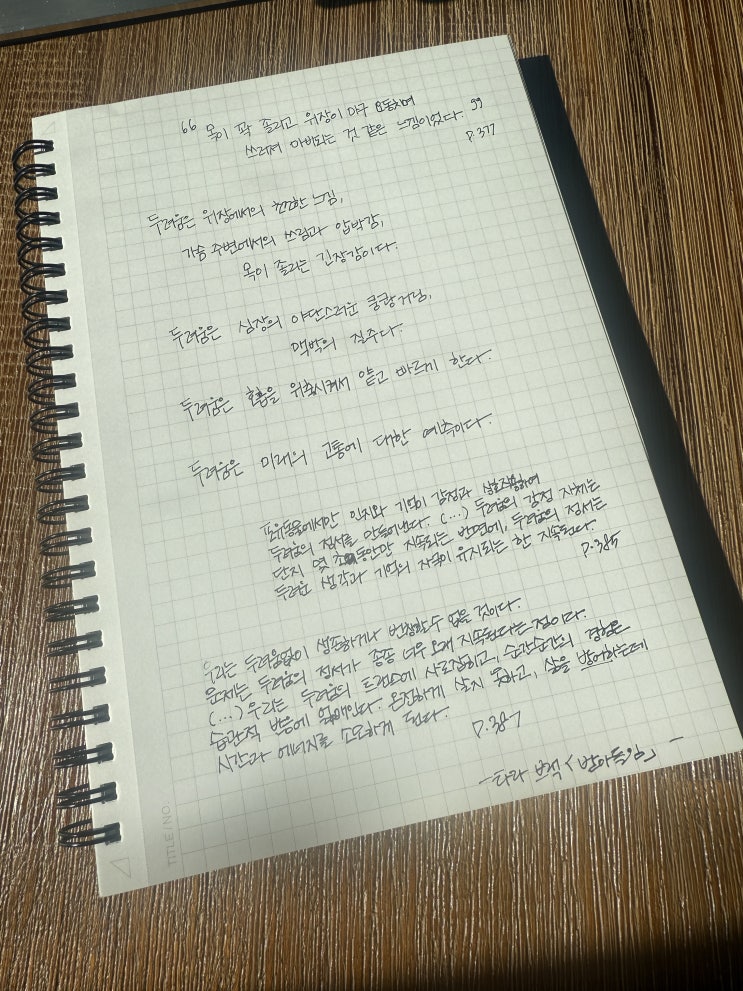 “ 목이 꽉 졸리고 위장이 마구 요동치며
쓰려져 마비되는 것 같은 느낌이었다. ”
P.377
두려움은 위장에서의 느낌,
가슴 주변에서의 쓰림과 압박감,
목이 졸리는 긴장감이다.
두려움은 심장의 야단스러운 쿵쾅거림,
맥박의 질주다.
두려움은 호흡을 위축시켜서 얕고 빠르게 한다.
두려움은 미래의 고통에 대한 예측이다.
포유동물에서만 인지와 기억이 감정과 상호작용하여
두려움의 정서를 만들어낸다. (...) 두려움의 감정 자체는
단지 몇 초동안만 지속되는 반면에, 두려움의 정서는
두려운 생각과 기억의 자극이 유지되는 한 지속된다.
P.385
우리는 두려움없이 생존하거나 번창할 수 없을 것이다.
문제는 두려움의 정서가 종종 너무 오래 지속된다는 점이다.
(...) 우리는 두려움의 트랜스에 사로잡히고, 순간순간의 경험은
습관적 반응에 얽매인다. 온전하게 살지 못하고, 삶을 방어하는데
시간과 에너지를 소모하게 된다.
P.387
- 타라 브랙 <받아들임> -
TITLE / NO.